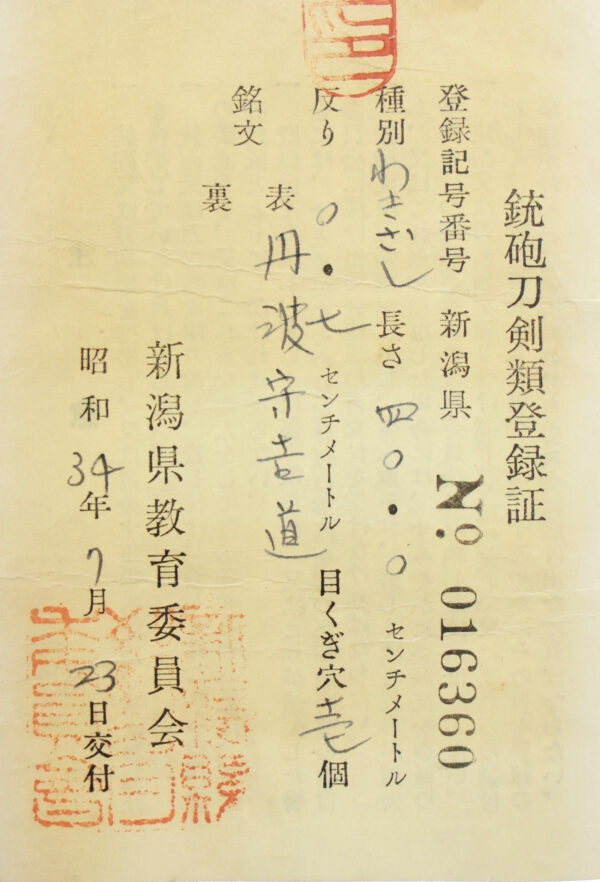 銃砲刀剣類登録証
登録記号番号 新潟県 No. 016360
種別 わきざし 長さ 四〇.〇 センチメートル
反り 〇.七 センチメートル 目くぎ穴 壱 個
銘文 表 丹波守吉道
裏
新潟県教育委員会
昭和 34年 7月 23日交付